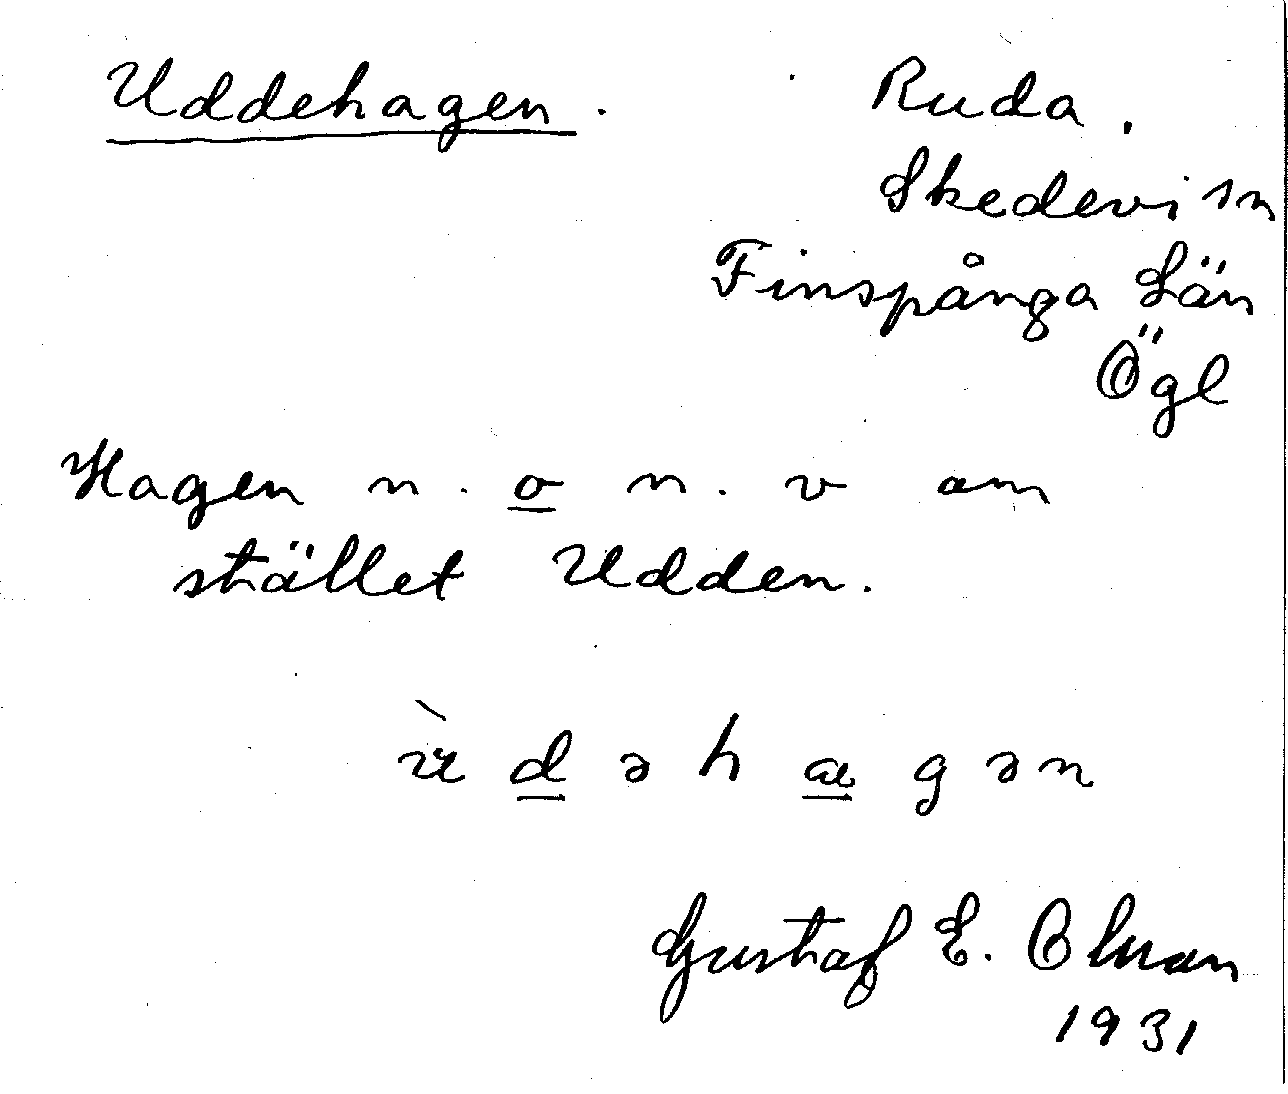 Uddehagen. Ruda.
Skedevi sn
Finspånga Län
Ögl
Hagen n. o n. v om
stället Udden.
ù d ə h a g ə n
Gustaf E. Olman
1931